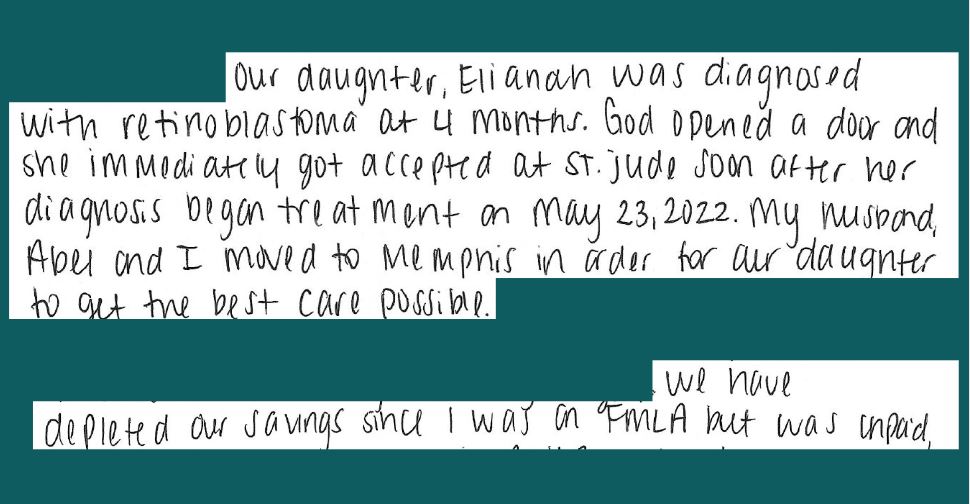 Our daughter, Elianah was diagnosed
with retinoblastoma at 4 months. God opened a door and
she immediately got accepted at St. jude soon after her
diagnosis began treatment on May 23, 2022. My husband,
Abel and I moved to Memphis in order for our daughter
to get the best care possible.
we have
depleted our savings since I was on FMLA but was unpaid,